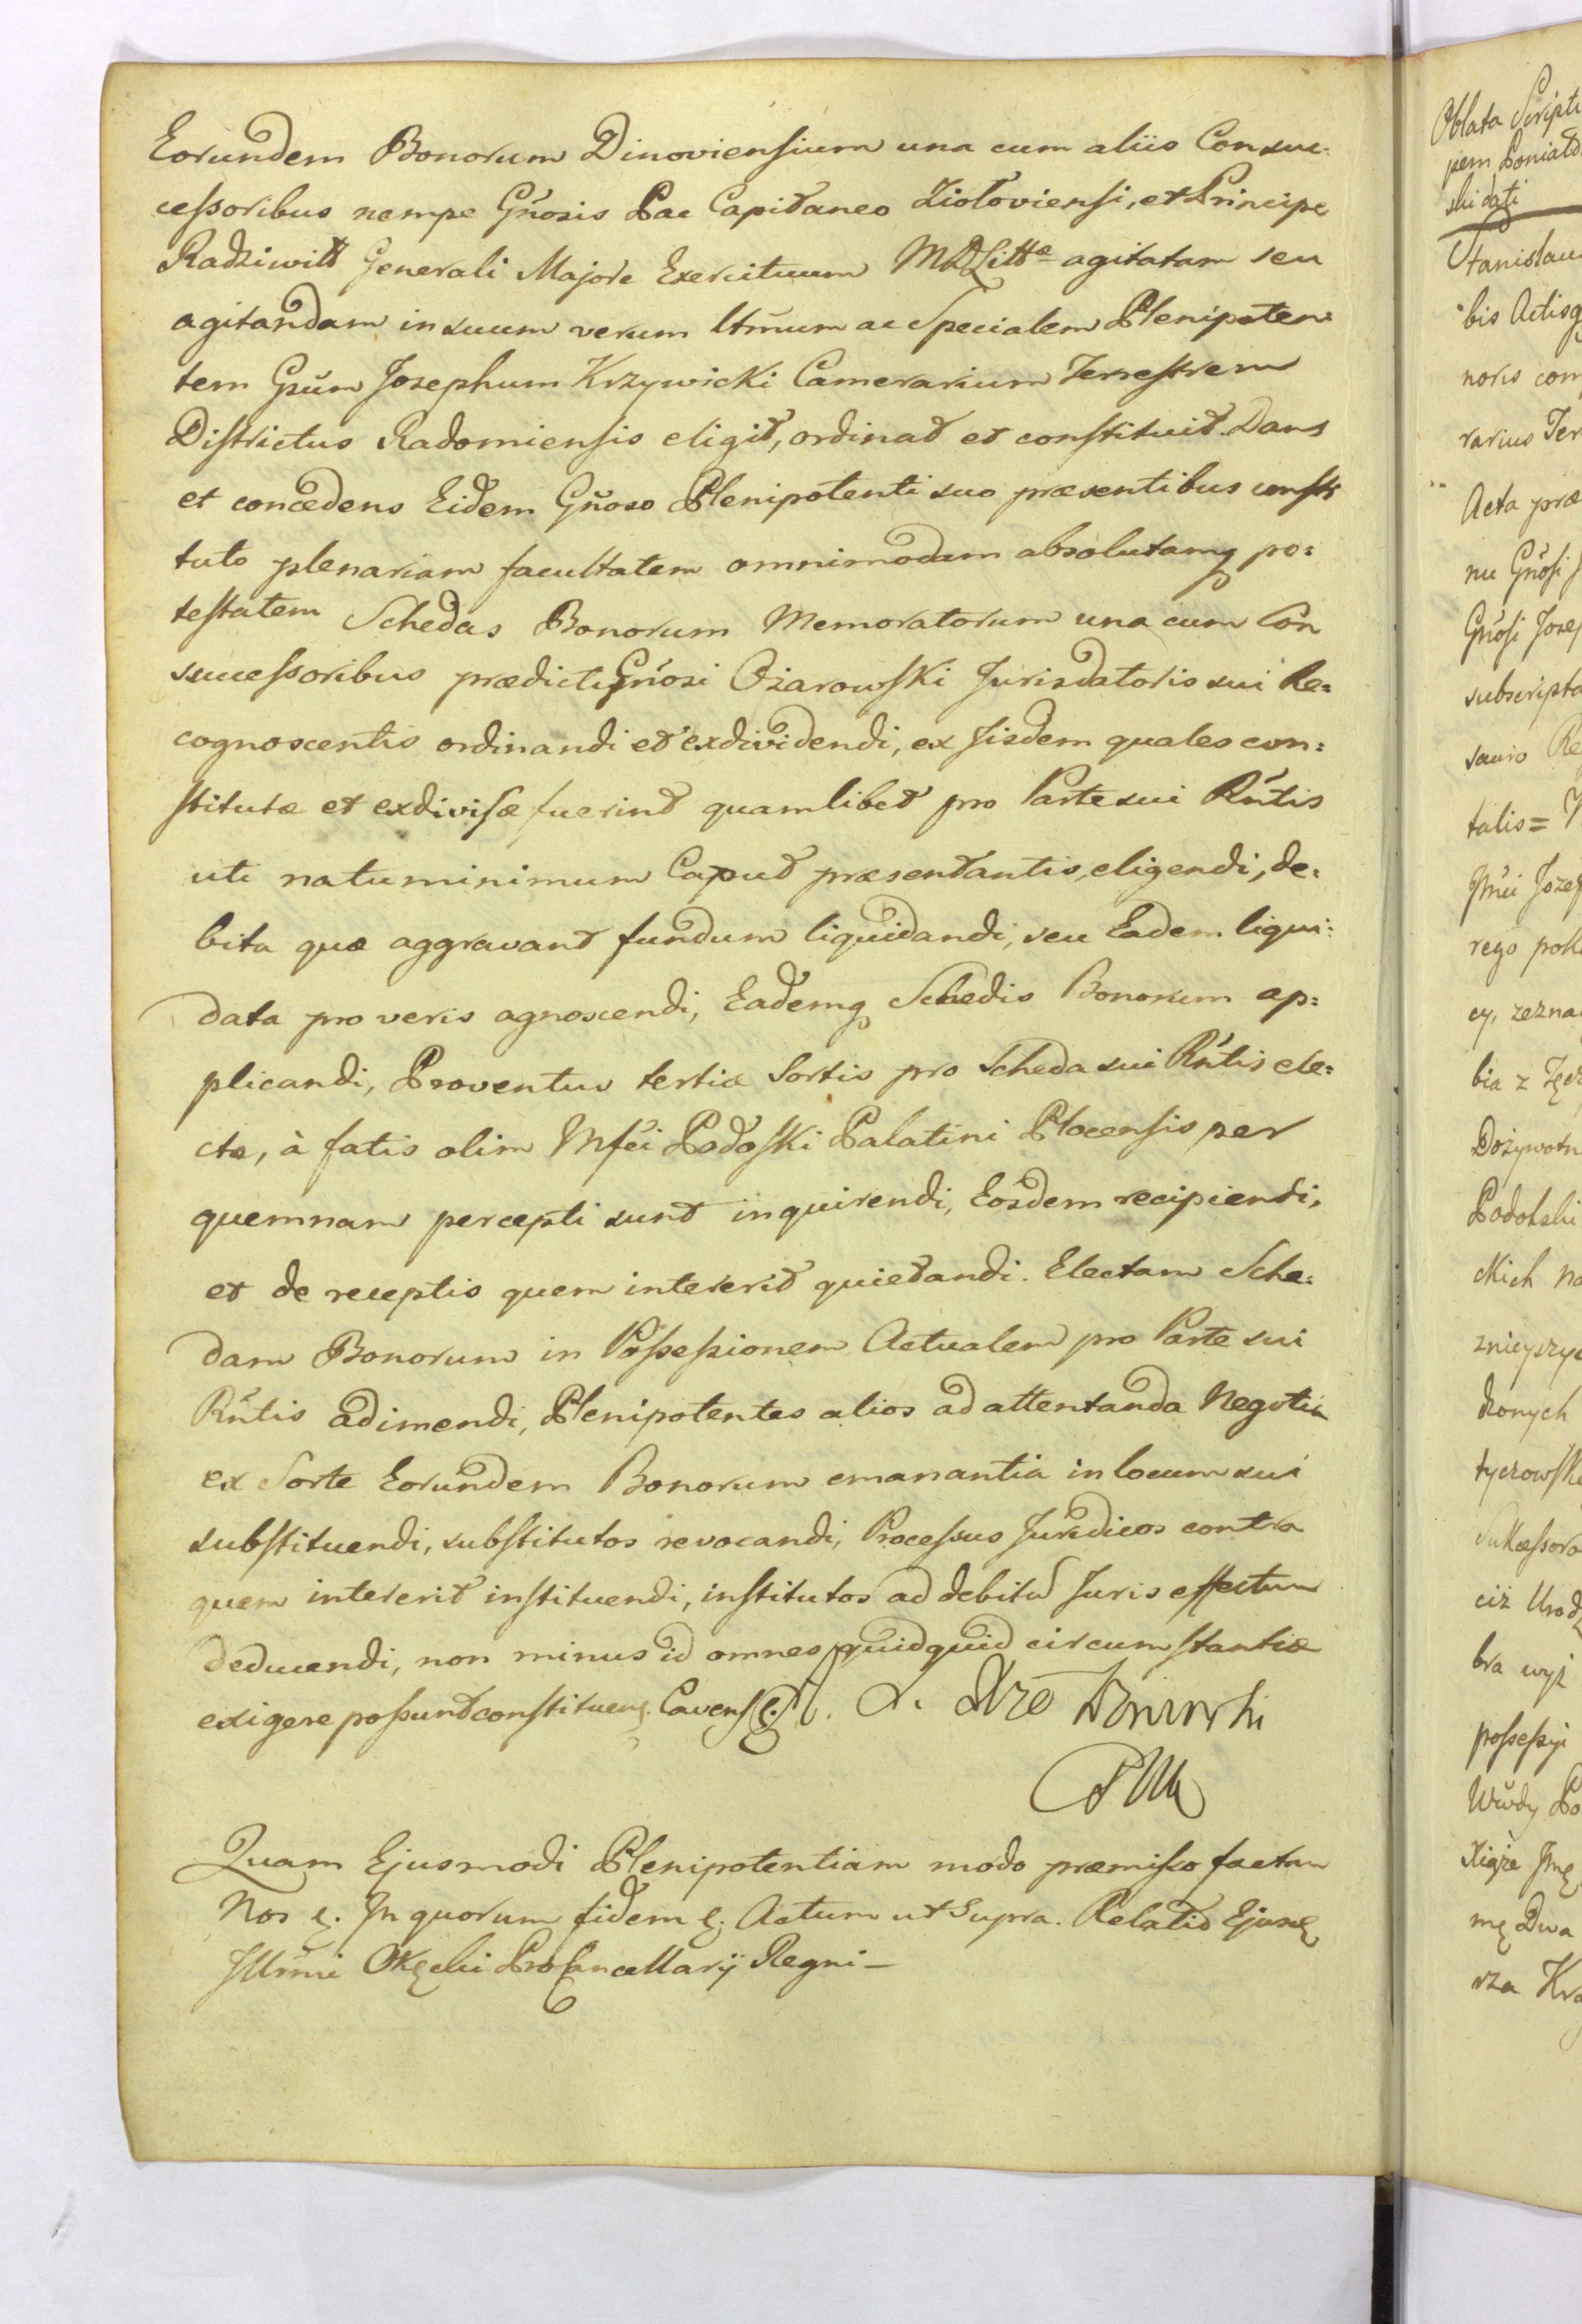 Eorundem Bonorum Dinoviensium una cum aliis Consuc=
cessoribus nempe Gnosis Pac Capitaneo Ziołoviensi, et Principe
Radziwiłł Generali Majore Exercituum MDLittæ agitatam seu
agitandam in suum verum ltmum ac Specialem Plenipoten=
tem Gsum Josephum Krzywicki Camerarium Terrestrem
Districtus Radomiensis eligit, ordinat et constituit. Dans
et concedens Eidem Gnoso Plenipotenti suo præsentibus consti
tuto plenariam facultatem omnimodam absolutamq po=
testatem Schedas Bonorum Memoratorum una cum Con
successoribus prædicti Gnosi Ożarowski Jurisdatoris sui Re=
cognoscentis ordinandi et exdividendi, ex Iisdem quales con=
stitutæ et exdivisæ fuerint quamlibet pro Parte sui Rntis
uti natu minimum Caput præsentantis, eligendi, de=
bita quæ aggravant fundum liquidandi, seu Eadem liqui=
data pro veris agnoscendi, Eademq Schedis Bonorum ap=
plicandi, Proventus tertiæ Sortis pro Scheda sui Rntis ele=
ctæ, à fatis olim Mfci Podoski Palatini Plocensis per
quemnam percepti sunt inquirendi, Eosdem recipiendi,
et de receptis quem intererit quietandi. Electam Sche=
dam Bonorum in Possessionem Actualem pro Parte sui
Rntis adimendi, Plenipotentes alios ad attentanda Negotia
ex Sorte Eorundem Bonorum emanantia in locum sui
substituendi, substitutos revocandi, Processus Juridicos contra
quem intererit instituendi, institutos ad debitu Juris effectum
deducendi, non minus id omnes quidquid circumstantiæ
exigere possunt constituen. Cavens
Quam Ejusmodi Plenipotentiam modo præmisso factam
Nos ę. In quorum fidem ę. Actum ut Supra. Relatio Ejusę
Illmi Okęcki ProCancellarij Regni —
Oblata Scripti
pem Poniato
ski dati
Stanislau
bis Actisq
noris com
rarius Ter
Acta præ
nu Gnosi J
Gnosi Josep
subscripta
sauro Re
talis =
Jmci Jozef
rego pok
cy, zezna
bia z Tęcz
Dożywotn
Podoski
ckich na
znieyszyc
dzonych
tyczowsk
Sukcessoro
ciż Urodz
bra wyż
possessyi
Wwdy Po
Xiąże Jmę
mę Dwa
rza Kro